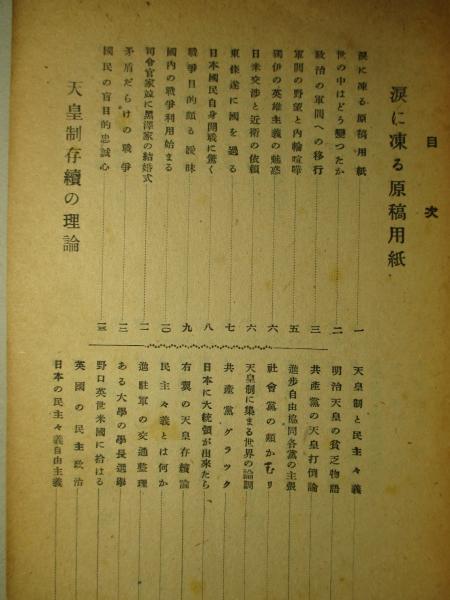 目次
涙に凍る原稿用紙
涙に凍る原稿用紙 一
世の中はどう變つたか 二
政治の軍閥への移行 三
軍閥の野望と內輪喧嘩 五
獨伊の英雄主義の魅惑 六
日米交渉と近衞の依賴 六
東條遂に國を過る 七
日本國民自身開戰に驚く 八
戰爭目的頗る曖昧 九
國內の戰爭利用始まる 一〇
司令官家竝に黑澤家の結婚式 一一
矛盾だらけの戰爭 一二
國民の盲目的忠誠心 一三
天皇制存續の理論
天皇制と民主々義
明治天皇の貧乏物語
共產黨の天皇打倒論
進步自由協同各黨の主張
社會黨の頰かむり
天皇制に集まる世界の論調
共產黨グラツク
日本に大統領が出來たら
右翼の天皇存續論
民主々義とは何か
進駐軍の交通整理
ある大學の學長選擧
野口英世米國に拾はる
英國の民主政治
日本の民主々義自由主義